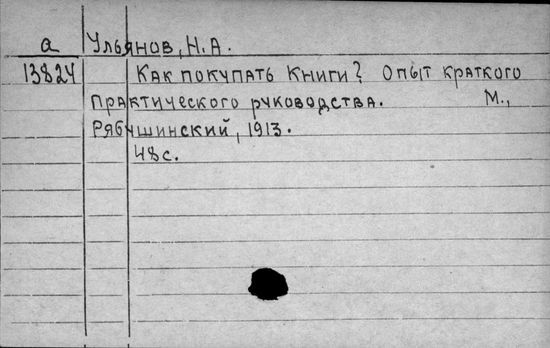 а Ульянов, Н.А.
13824 Как покупать книги? Опыт краткого
практического руководства. М.,
Рябушинский, 1913.
48с.